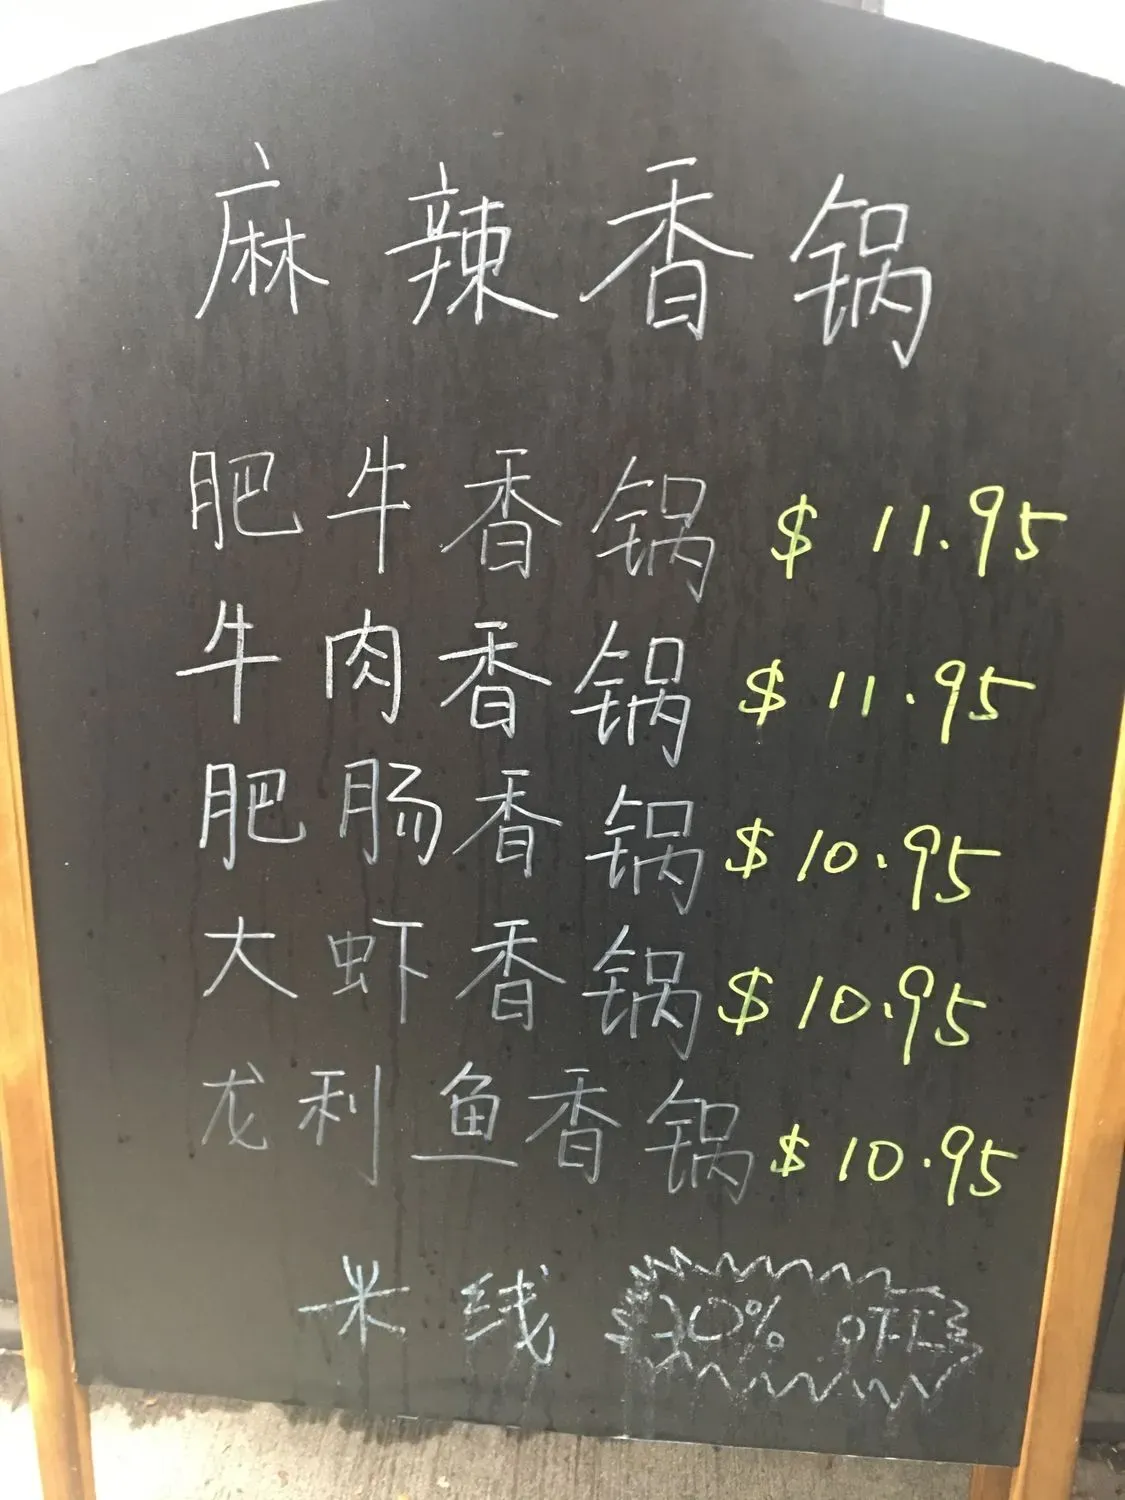 麻辣香锅
肥牛香锅 $11.95
牛肉香锅 $11.95
肥肠香锅 $10.95
大虾香锅 $10.95
龙利鱼香锅 $10.95
米线 OFF